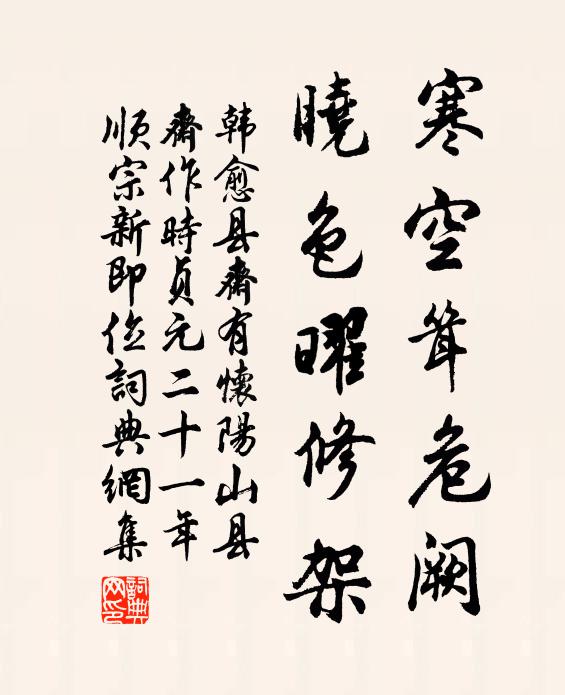 寒空聳危阙
曉色曜修架
韩愈县齋有懷陽山县
齋作時貞元二十一年
順宗新即位詞典網集
詞典網印